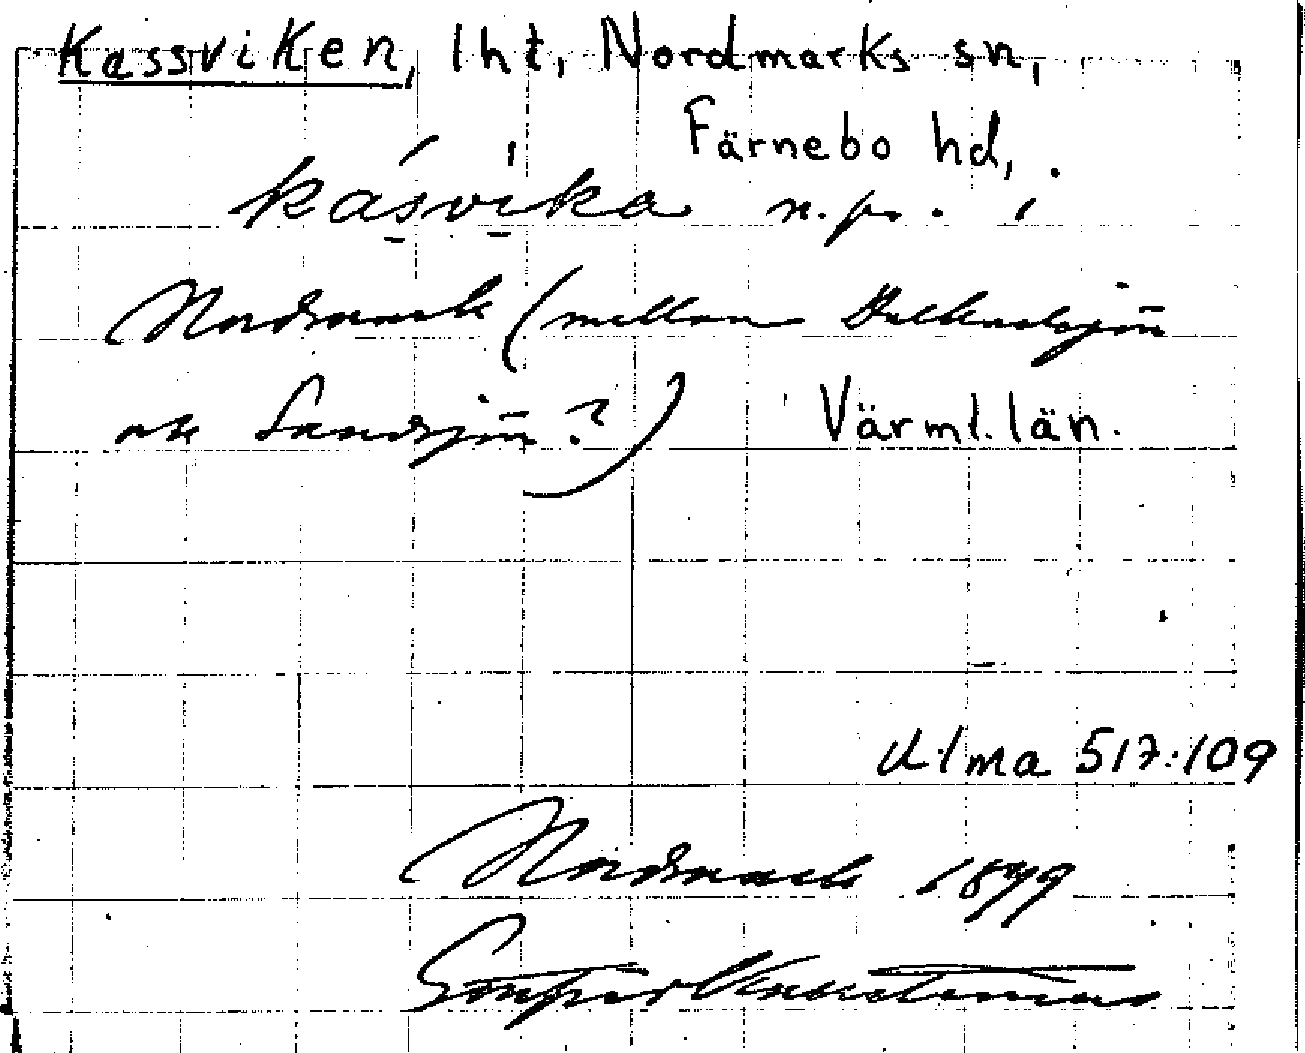 Kassviken, lht, Nordmarks sn,
Färnebo hd,
kásvika n. pr. i
Nordmark (mellan
och Sandsjön?) Värml. län.
Ulma 517:109
Nordmark 1879